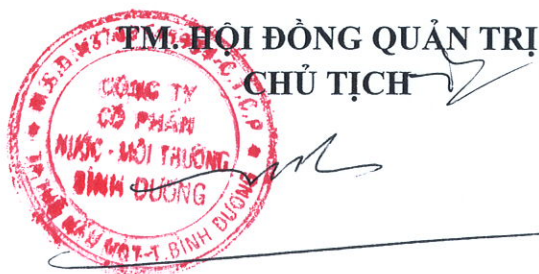 TM. HỘI ĐỒNG QUẢN TRỊ
CHỦ TỊCH
CÔNG TY
CỔ PHẦN
NƯỚC - MÔI TRƯỜNG
BÌNH DƯƠNG
M.S.D.N:37
C.T.C.P
MỘT-T.BÌNH DƯƠNG